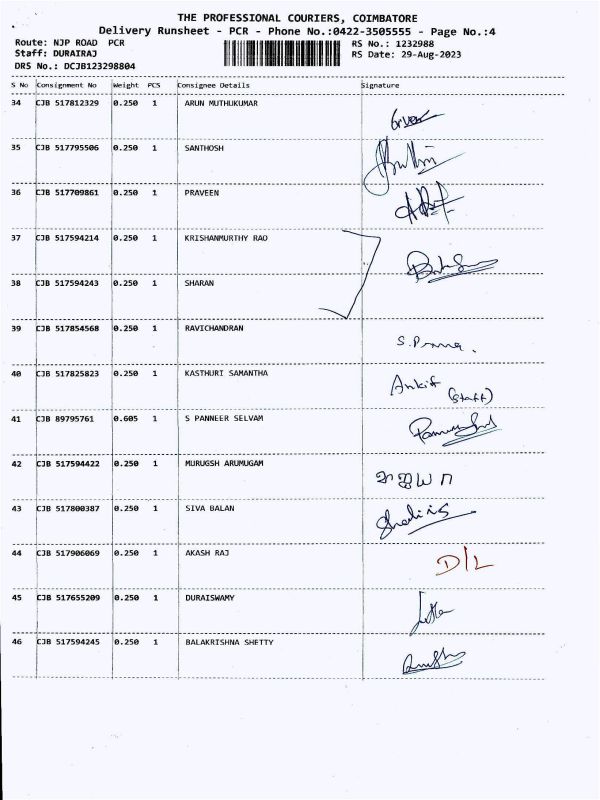 THE PROFESSIONAL COURIERS, COIMBATORE
Delivery Runsheet - PCR - Phone No.:0422-3505555 - Page No.:4
Route: NJP ROAD PCR RS No.: 1232988
Staff: DURAIRAJ RS Date: 29-Aug-2023
DRS No.: DCJB123298804
S No Consignment No Weight PCS Consignee Details Signature
34 CJB 517812329 0.250 1 ARUN MUTHUKUMAR
35 CJB 517795506 0.250 1 SANTHOSH
36 CJB 517709861 0.250 1 PRAVEEN
37 CJB 517594214 0.250 1 KRISHANMURTHY RAO
38 CJB 517594243 0.250 1 SHARAN
39 CJB 517854568 0.250 1 RAVICHANDRAN
40 CJB 517825823 0.250 1 KASTHURI SAMANTHA Ankit (Staff)
41 CJB 89795761 0.605 1 S PANNEER SELVAM
42 CJB 517594422 0.250 1 MURUGSH ARUMUGAM
43 CJB 517800387 0.250 1 SIVA BALAN
44 CJB 517906069 0.250 1 AKASH RAJ D/L
45 CJB 517655209 0.250 1 DURAISWAMY
46 CJB 517594245 0.250 1 BALAKRISHNA SHETTY